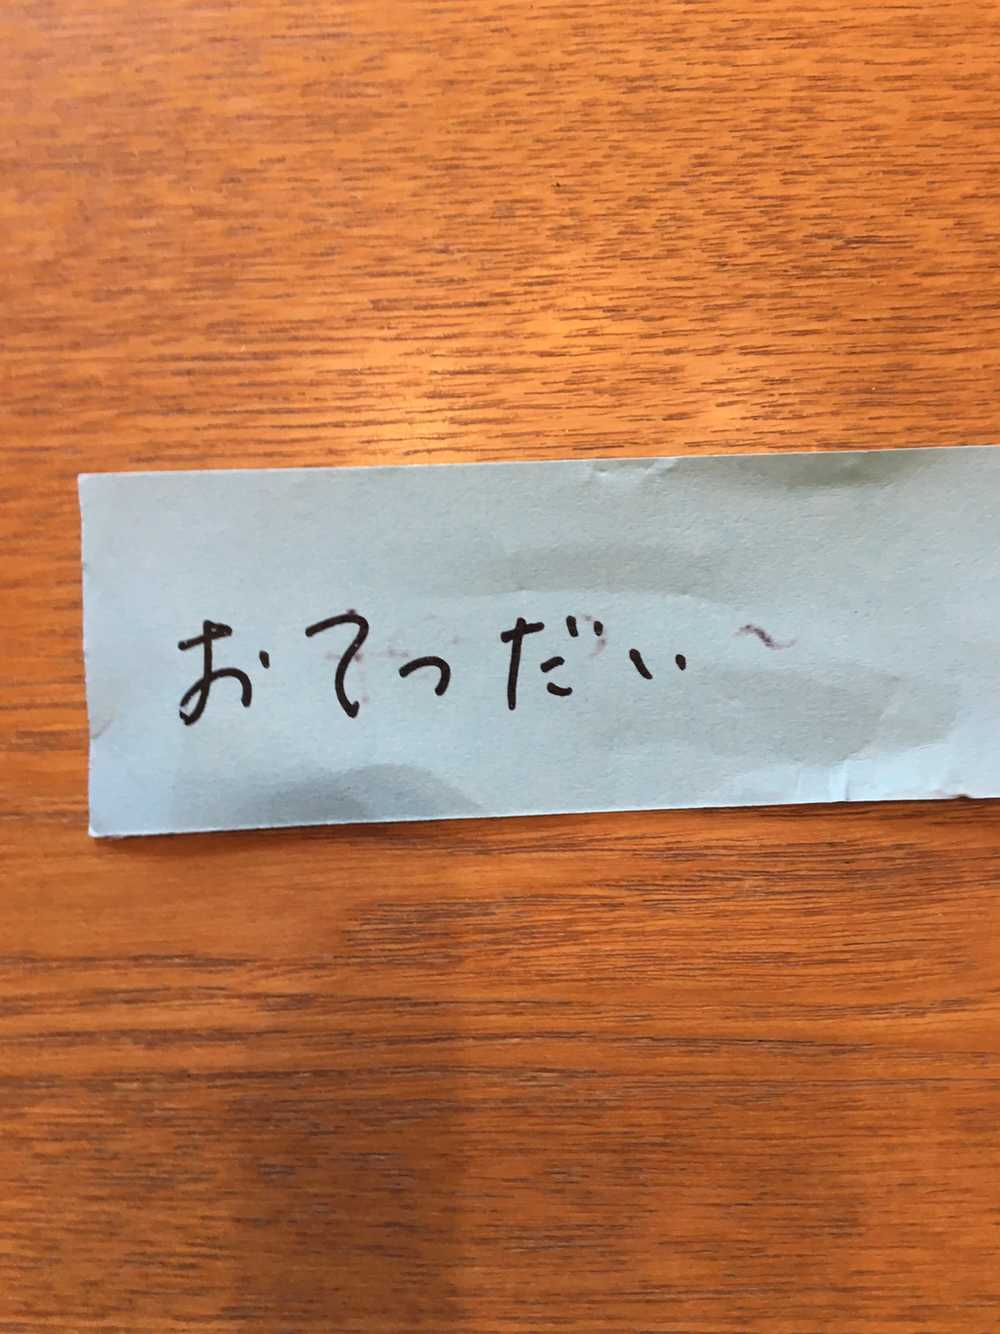 おてつだい